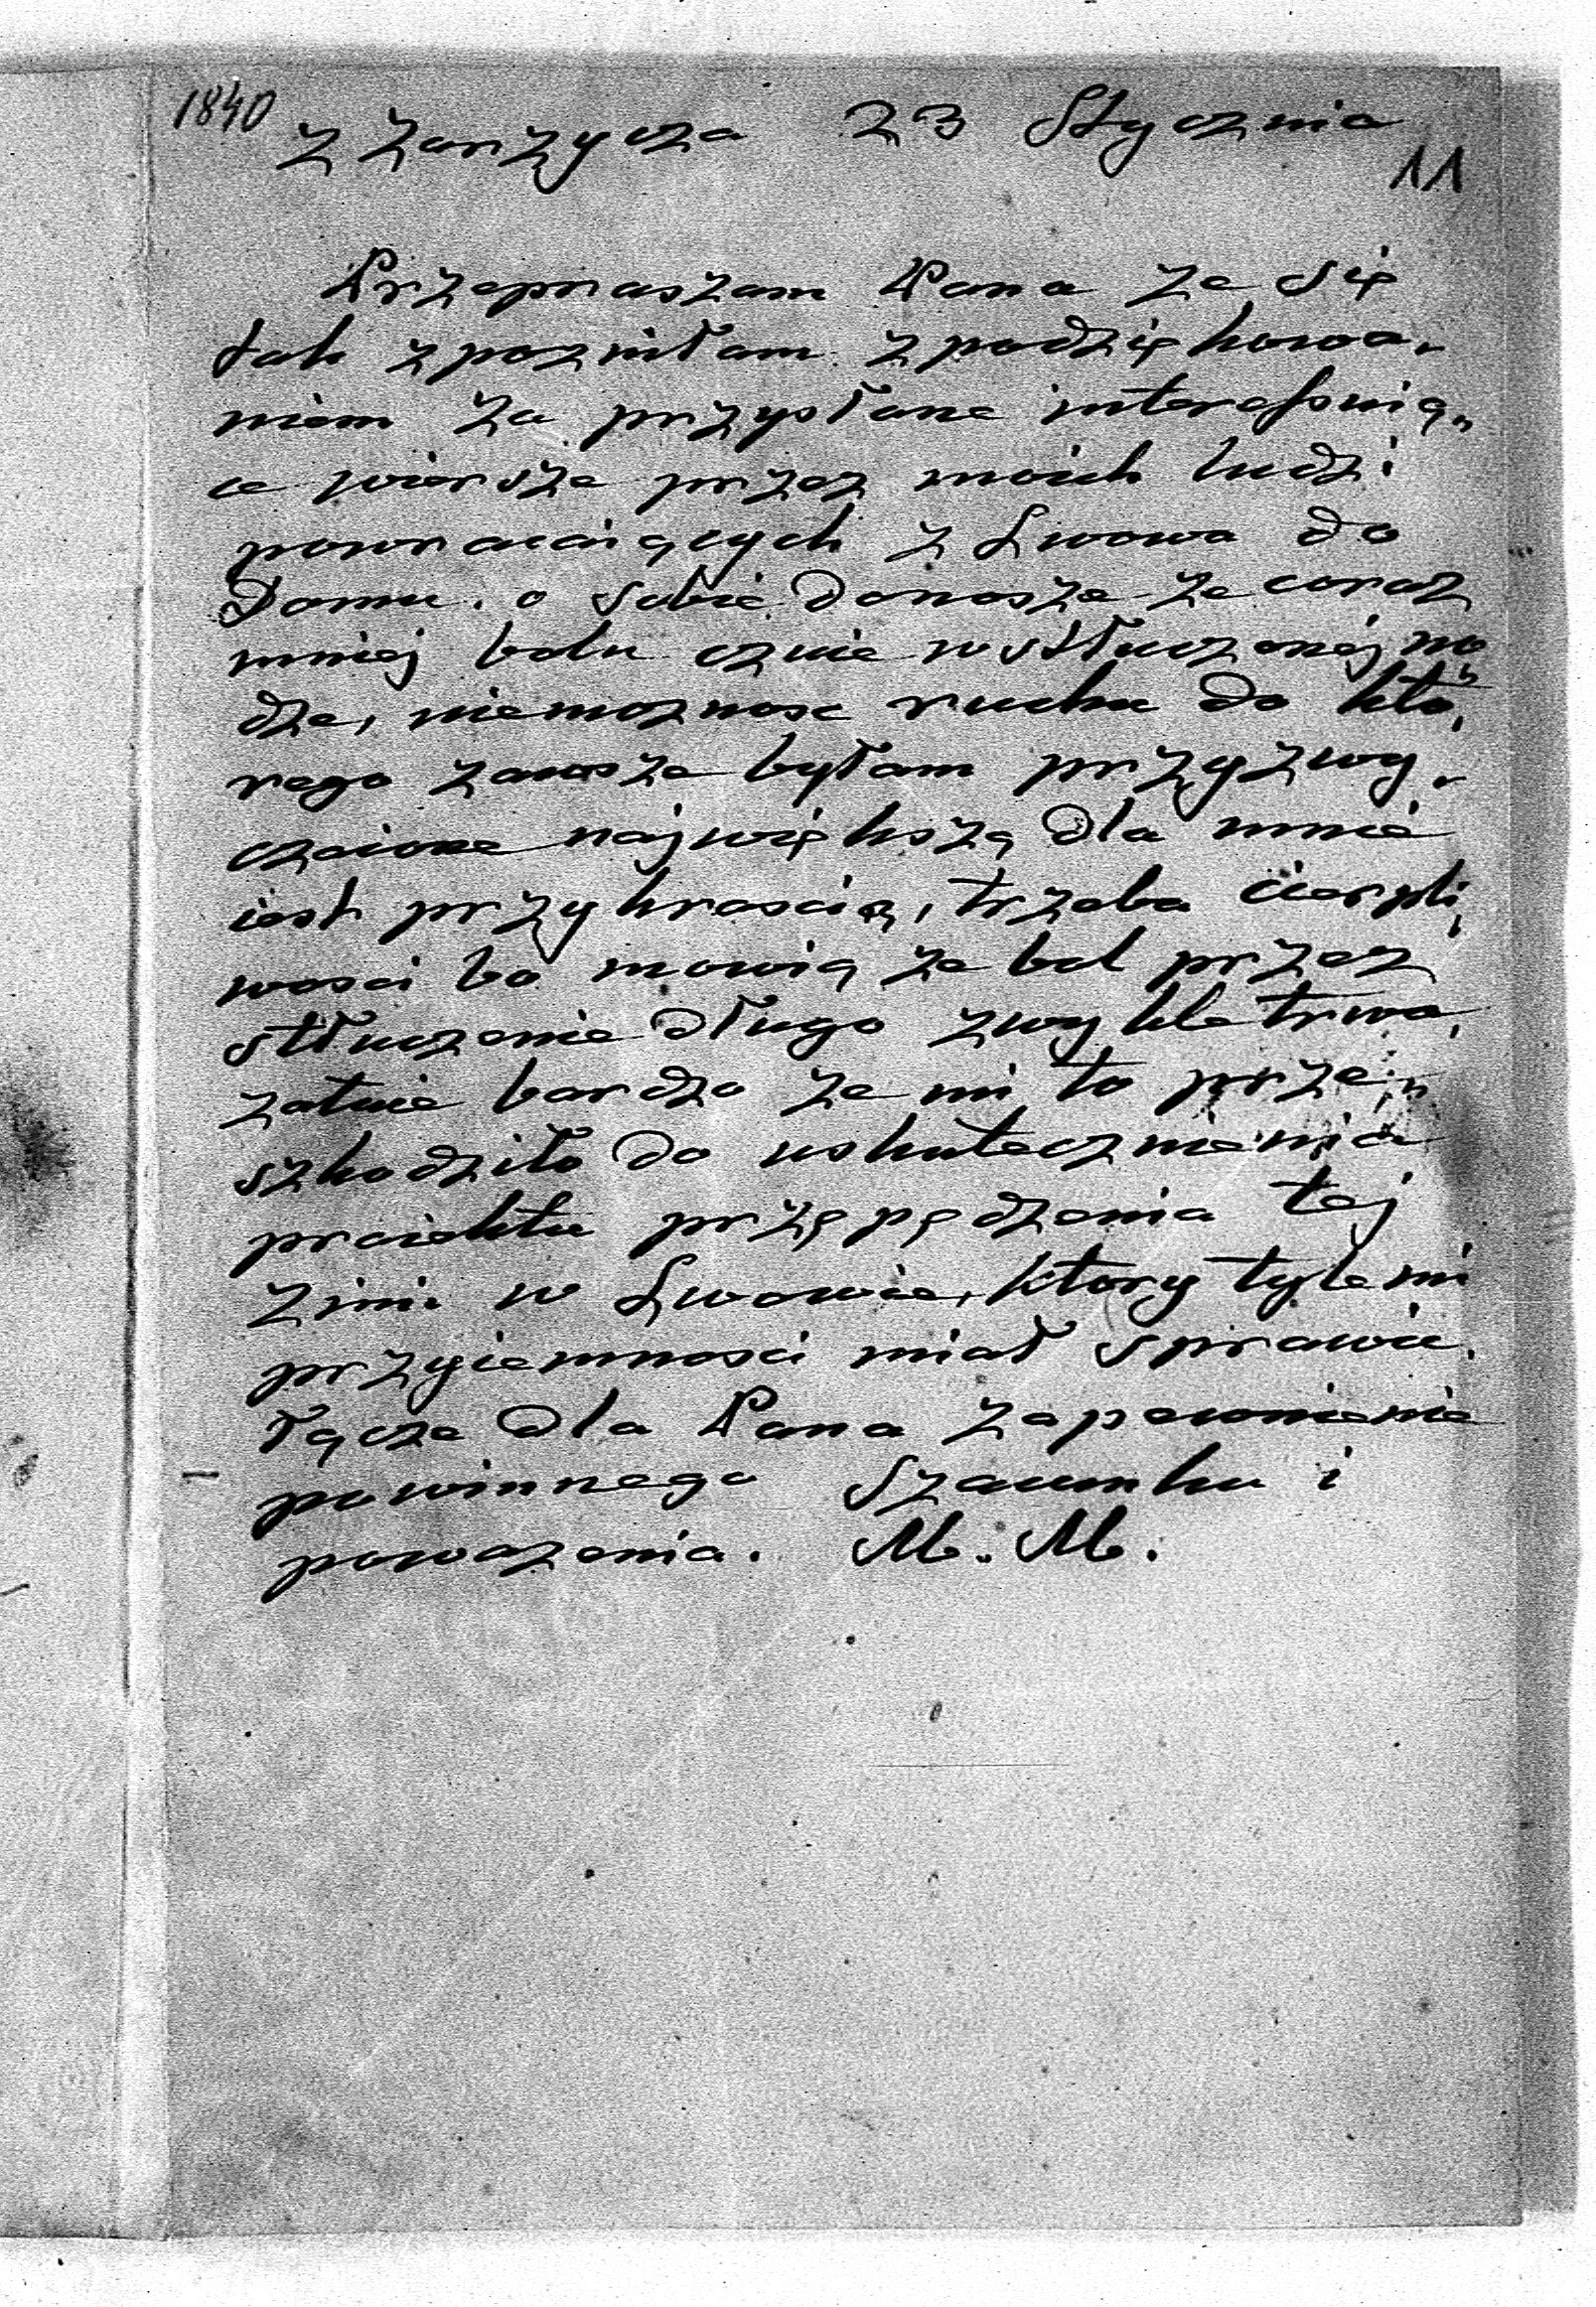 1840
z Zarzycza 23 Stycznia
11
Przepraszam Pana ze się
tak zpozniłam z podziękowa„
niem za przysłane interessuią„
ce wiersze przez moich ludzi
powracaiących z Lwowa do
Domu. o Sobie Donosze ze coraz
mniej bolu czuie w stłuczonej no
dze, niemoznosc ruchu do któ„
rego zawsze byłam przyzwy„
czaiona największą dla mnie
iest przykroscią, trzeba cierpli„
wosci bo mowią ze bol przez
stłuczenie długo zwykle trwa,
załuie bardzo ze mi to prze„
szkodziło do uskutecznienia
proiektu przępędzenia tej
zimi w Lwowie, ktory tyle mi
przyiemnosci miał sprawic.
łącze dla Pana zapewnienie
powinnego Szacunku i
powazenia. M. M.